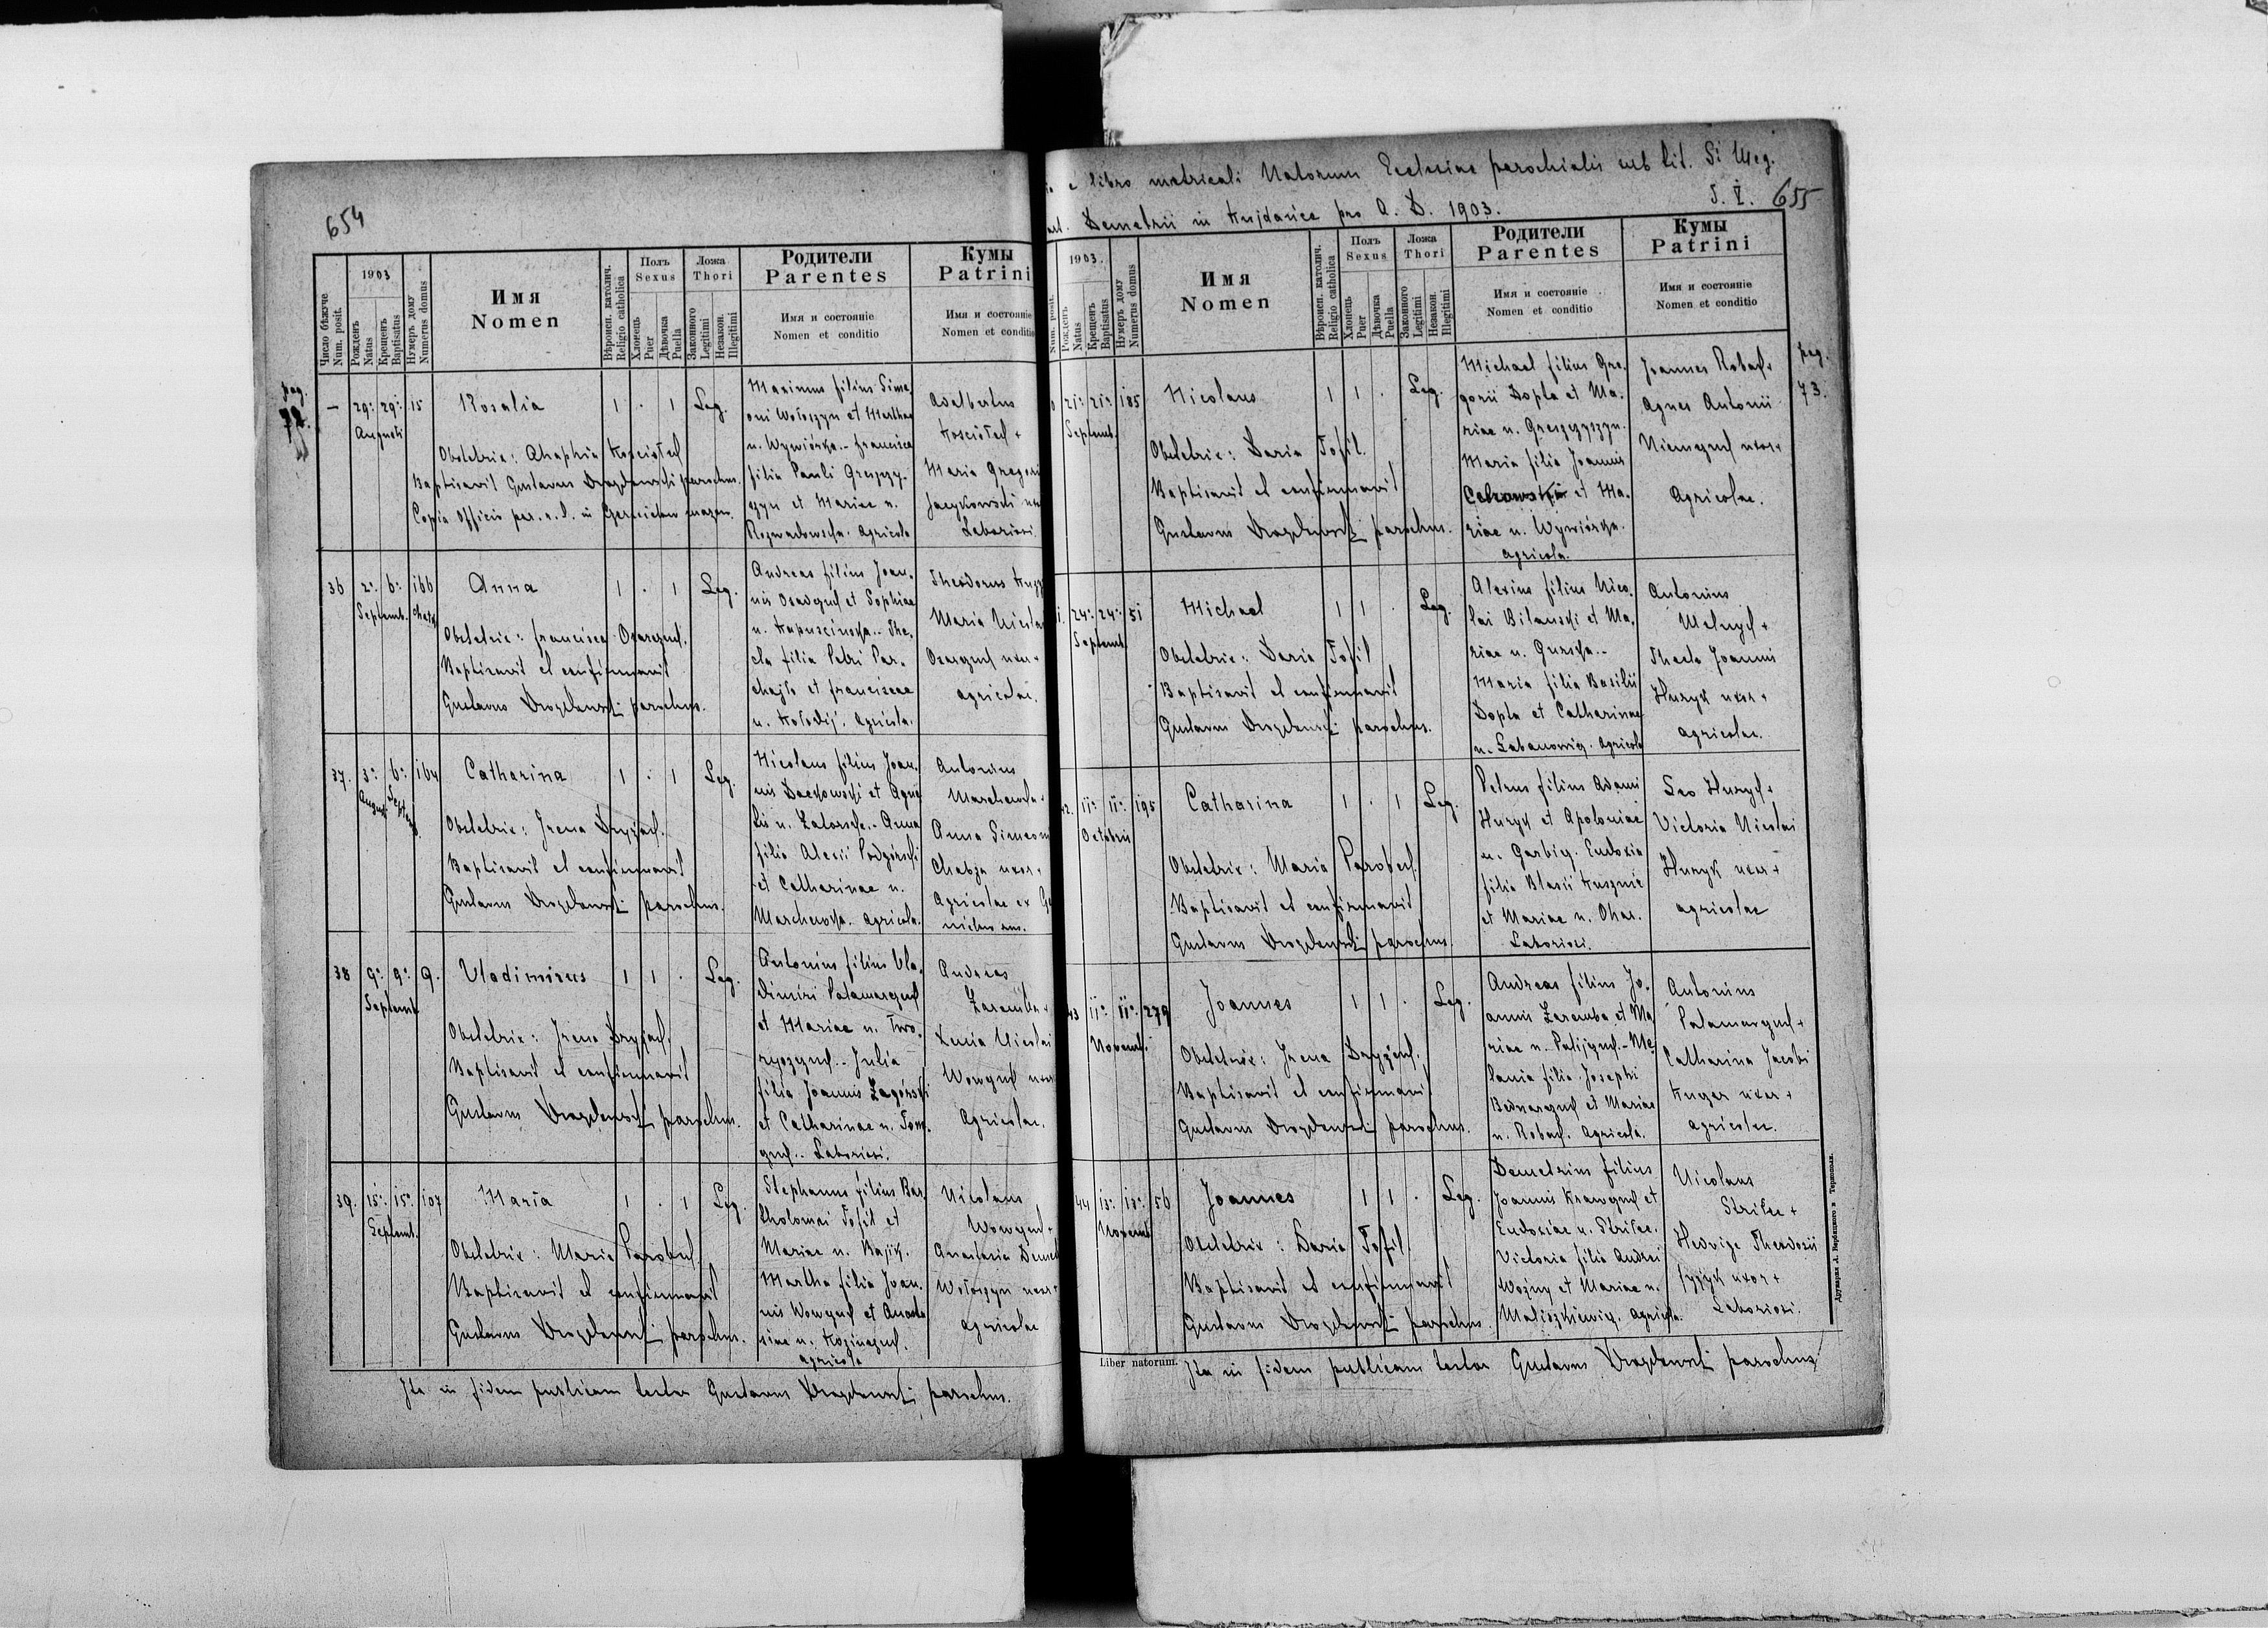 654
Число бѣжуче
Num. posit.
1903
Рожденъ
Natus
Крещенъ
Baptisatus
Нумеръ дому
Numerus domus
Имя
Nomen
Вѣроисп. католич.
Religio catholica
Полъ
Sexus
Хлопець
Puer
Дѣвочка
Puella
Ложа
Thori
Законного
Legitimi
Незакон.
Illegitimi
Родители
Parentes
Имя и состояніе
Nomen et conditio
Кумы
Patrini
Имя и состояніе
Nomen et conditio
pag.
72.
— 29. 29. 15 Rosalia 1 . 1 Leg.
Augusti
Obstetrix: Ahaphia Kosciołek
Baptisavit Gustavus Drozdowski parochus.
Copia Officio par. r. l. in
Maximus filius Sime
oni Wołoszyn et Marthae
n. Wywiórka.- Francisca
filia Pauli Greszczy-
szyn et Mariae n.
Rozwadowska. Agricola
Adelbertus
Kosciołek +
Maria Gregori
Jaczkowski
Laboriosi.
36 2. 6. 166 Anna 1 . 1 Leg.
Septemb.
Obstetrix: Francisca Owarczuk.
Baptisavit et confirmavit
Gustavus Drozdowski parochus.
Andreas filius Joan-
nis et Sophiae
n. Kapuscinska.. The-
cla filia Petri Par-
chajło et Franciscae
n. Kołodij. Agricola.
Theodorus
Maria Nicola
uxor +
agricolae.
37. 3. 6. 164 Catharina 1 . 1 Leg.
August Sept.
Obstetrix: Irena Dryżak.
Baptisavit et confirmavit
Gustavus Drozdowski parochus.
Nicolaus filius Joan-
nis Daczkowski et Agne
tis n. Zatorska.- Anna
filia Alexii Podgórski
et Catharinae n.
Marchewka. Agricola.
Antonius
Marchewka +
Anna Simeon
Chabza uxor +
Agricolae ex
38 9. 9. 9. Vladimirus 1 1 . Leg.
Septemb.
Obstetrix: Irena Dryżak.
Baptisavit et confirmavit
Gustavus Drozdowski parochus.
Antonius filius Vla-
dimiri Palamarczuk
et Mariae n. Two-
.. Julia
filia Joannis Zagórski
et Catharinae n. Tom-
czuk.. Laboriosi.
Andreas
Zaremba +
Lucia Nicolai
Wowczuk uxor
Agricolae.
39. 15. 15. 107 Maria 1 . 1 Leg.
Septemb.
Obstetrix: Maria Parobek.
Baptisavit et confirmavit
Gustavus Drozdowski parochus.
Stephanus filius Bar-
tholomai Tofil et
Mariae n. Bajik.
Martha filia Joan-
nis Wowczuk et Anasta
siae n.
agricola
Nicolaus
Wowczuk +
Anastasia Demet
Wołoszyn uxor +
agricolae
Ita in fidem publicam testor Gustavus Drozdowski parochus.
e libro metricali Natorum Ecclesiae parochialis sub tit. Sti Meg.
Mart. Demetrii in Kujdańce pro A. D. 1903.
T. V. 655
Num. posit.
1903.
Рожденъ
Natus
Крещенъ
Baptisatus
Нумеръ дому
Numerus domus
Имя
Nomen
Вѣроисп. католич.
Religio catholica
Полъ
Sexus
Хлопець
Puer
Дѣвочка
Puella
Ложа
Thori
Законного
Legitimi
Незакон.
Illegitimi
Родители
Parentes
Имя и состояніе
Nomen et conditio
Кумы
Patrini
Имя и состояніе
Nomen et conditio
pag.
73.
0 21. 21. 185 Nicolaus 1 1 . Leg.
Septemb.
Obstetrix: Daria Tofil.
Baptisavit et confirmavit
Gustavus Drozdowski parochus.
Michael filius Gre-
gorii Dopta et Ma-
riae n. Greszczyszyn.
Maria filia Joannis
et Ma-
riae n. Wywiórka.
agricola.
Joannes Robak +
Agnes Antonii
uxor +
Agricolae.
1. 24. 24. 51 Michael 1 1 . Leg.
Septemb.
Obstetrix: Daria Tofil
Baptisavit et confirmavit
Gustavus Drozdowski parochus.
Alexius filius Nico-
lai Bilanski et Ma-
riae n. Gurska..
Maria filia Basilii
Dopta et Catharinae
n. Labanowicz. Agricola
Antonius
Melnyk +
Thecla Joannis
Huryk uxor +
agricolae.
42. 11. 11. 195 Catharina 1 . 1 Leg.
Octobris
Obstetrix: Maria Parobek.
Baptisavit et confirmavit
Gustavus Drozdowski parochus.
Petrus filius Adami
Huryk et Apoloniae
n. Garbicz. Eudoxia
filia Blasii Kusznir
et Mariae n. Ohar.
Laboriosi.
Leo Huryk +
Victoria Nicolai
Huryk uxor +
agricolae
43 11. 11. 279 Joannes 1 1 . Leg.
Novemb.
Obstetrix: Irena Dryżak.
Baptisavit et confirmavit
Gustavus Drozdowski parochus.
Andreas filius Jo-
annis Zaremba et Ma
riae n. Palijczuk.- Me
lania filia Josephi
Bednarczuk et Mariae
n. Robak. Agricola.
Antonius
Palamarczuk +
Catharina Jacobi
Kugar uxor +
agricolae.
44 13. 13. 56 Joannes 1 1 . Leg.
Novemb.
Obstetrix: Daria Tofil.
Baptisavit et confirmavit
Gustavus Drozdowski parochus.
Demetrius filius
Joannis Krawczuk et
Eudoxiae n. Strilec.
Victoria filia Andrei
Wozny et Mariae n.
Maliszkiewicz. Agricola.
Nicolaus
Strilec +
Hedviga Theodosii
uxor +
Laboriosi.
Liber natorum.
Ita in fidem publicam testor Gustavus Drozdowski parochus